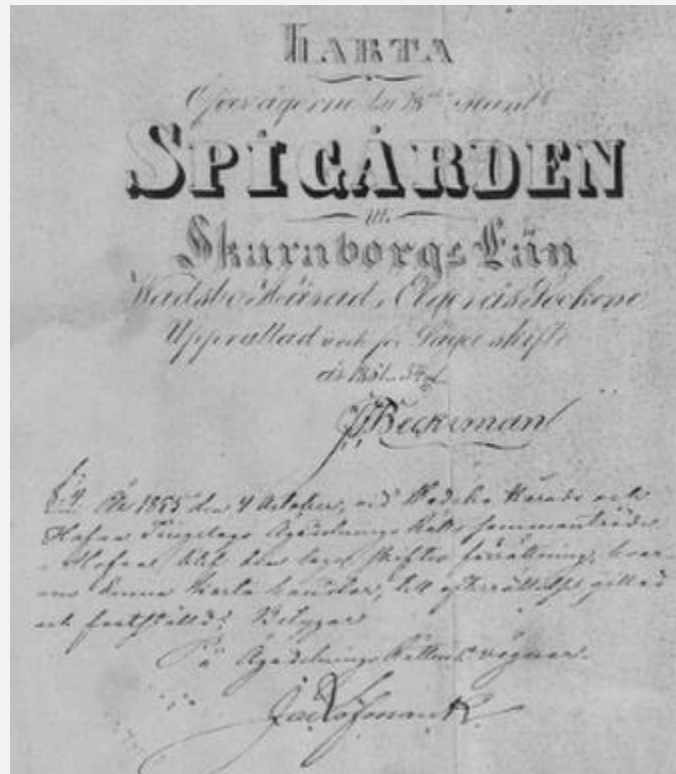 KARTA
Öfver ägorne till
SPIGÅRDEN
uti
Skaraborgs Län
Wadsbo Härad, Socken
Upprättad och för Laga skifte
år 1851
Beckman
§ 9 År 1855 den 4 October, vid Wadsbo Härads och
Hofva Tingslags Ägodelnings Rätts sammanträde
i Hofva blef den laga skiftes förrättning, hvar-
om denna karta handlar, till efterrättelse gillad
och fastställd; Betygar
På Ägodelnings Rättens vägnar.